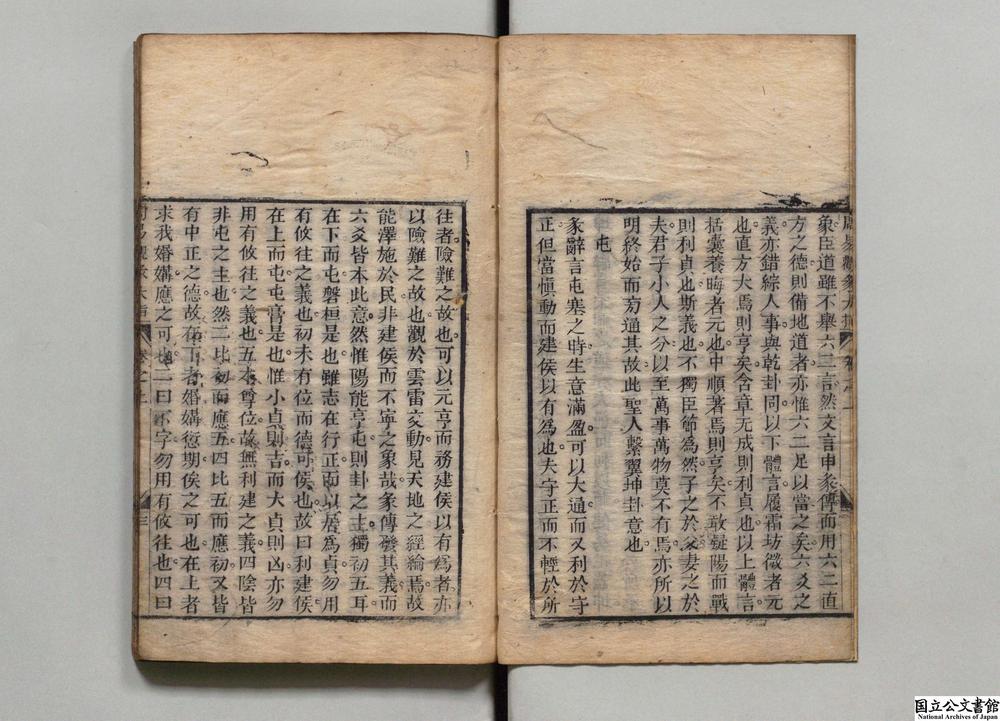 象臣道雖不舉六三言然文言申彖傳而用六二直
方之德則備地道者亦惟六二足以當之矣六爻之
義亦錯綜人事與乾卦同以下體言履霜坊微者元
也直方大焉則亨矣含章无成則利貞也以上體言
括囊養晦者元也中順著焉則亨矣不敢疑陽而戰
則利貞也斯義也不獨臣節為然子之於父妻之於
夫君子小人之分以至萬事萬物莫不有焉亦所以
明終始而旁通其故此聖人繫翼坤卦意也
屯
彖辭言屯塞之時生意滿盈可以大通而又利於守
正但當慎動而建侯以有為也夫守正而不輕於所
往者險難之故也可以元亨而務建侯以有為者亦
以險難之故也觀於雲雷交動見天地之經綸焉故
能澤施於民非建侯而不寧之象哉彖傳發其義而
六爻皆本此意然惟陽能亨屯則卦之主獨初五耳
在下而屯磐桓是也雖志在行正而以居為貞勿用
有攸往之義也初未有位而德可侯也故曰利建侯
在上而屯屯膏是也惟小貞則吉而大貞則凶亦勿
用有攸往之義也五本尊位故無利建之義四陰皆
非屯之主也然二比初而應五四比五而應初又皆
有中正之德故在下者婚媾愆期俟之可也在上者
求我婚媾應之可也二曰不字勿用有攸往也四曰
卷之上
三
国立公文書館
National Archives of Japan